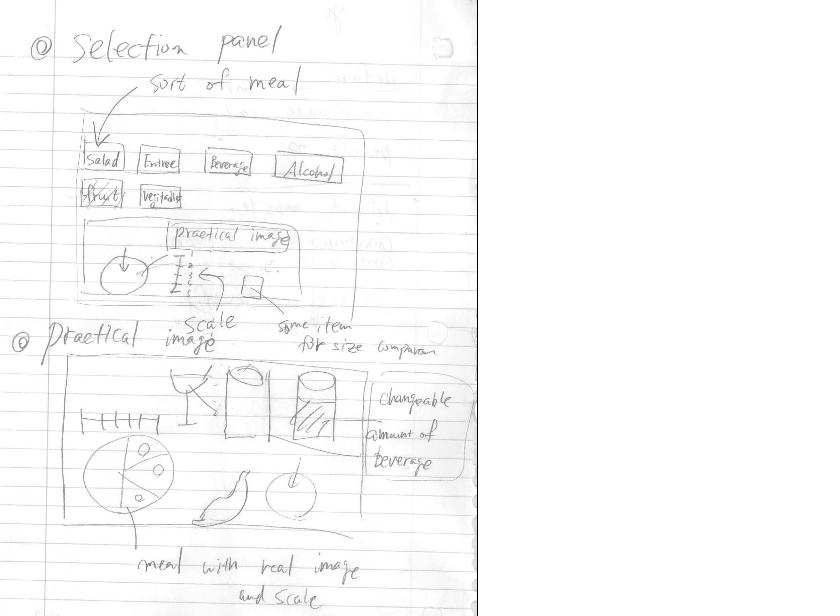 Selection panel
sort of meal
Salad Entree Beverage Alcohol
fruit vegitables
practical image
scale
some item
for size comparison
Practical image
changeable
amount of
beverage
meal with real image
and scale